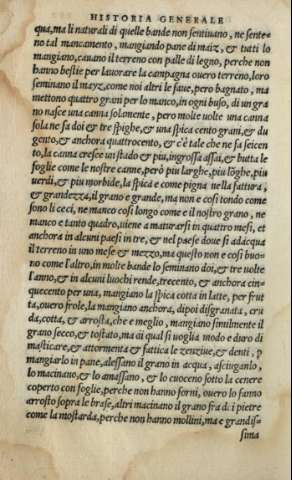 HISTORIA GENERALE
qua, ma li naturali di quelle bande non sentinano, ne sente-
no tal mancamento, mangiando pane di maiz, & tutti lo
mangiano, cauano il terreno con palle di legno, perche non
hanno bestie per lauorare la campagna ouero terreno, loro
seminano il mayz, come noi altri le faue, pero bagnato, ma
mettono quattro grani per lo manco, in ogni buso, di un gra
no nasce una canna solamente, pero molte uolte una canna
sola ne fa doi & tre spighe, & una spica cento grani, & du
gento, & anchora quattrocento, & c'è tale che ne fa seicen
to, la canna cresce un stado & piu, ingrossa assai, & butta le
foglie come le nostre canne, però piu larghe, piu lõghe, piu
uerdi, & piu morbide, la spica è come pigna nella fattura,
& grandezza, il grano e grande, ma non e cosi tondo come
sono li ceci, ne manco cosi longo come è il nostro grano, ne
manco e tanto quadro, uiene a maturarsi in quattro mesi, et
anchora in alcuni paesi in tre, & nel paese doue si adacqua
il terreno in uno mese & mezzo, ma questo non e cosi buo-
no come l'altro, in molte bande lo seminano doi, & tre uolte
l'anno, & in alcuni luochi rende, trecento, & anchora cin-
quecento per una, mangiano la spica cotta in latte, per frut
ta, ouero frole, la mangiano anchora, dipoi disgranata, cru
da, cotta, & arrosta, che e meglio, mangiano similmente il
grano secco, & tostato, ma ai qual si uoglia modo e duro di
masticare, & attormenta & fattica le zenziue, & denti, p
mangiarlo in pane, alessano il grano in acqua, asciuganlo,
lo macinano, & lo amassano, & lo cuoceno sotto la cenere
coperto con foglie, perche non hanno forni, ouero lo fanno
arrosto sopra le brase, altri macinano il grano fra di i pietre
come la mostarda, perche non hanno mollini, ma e grandis-
sima